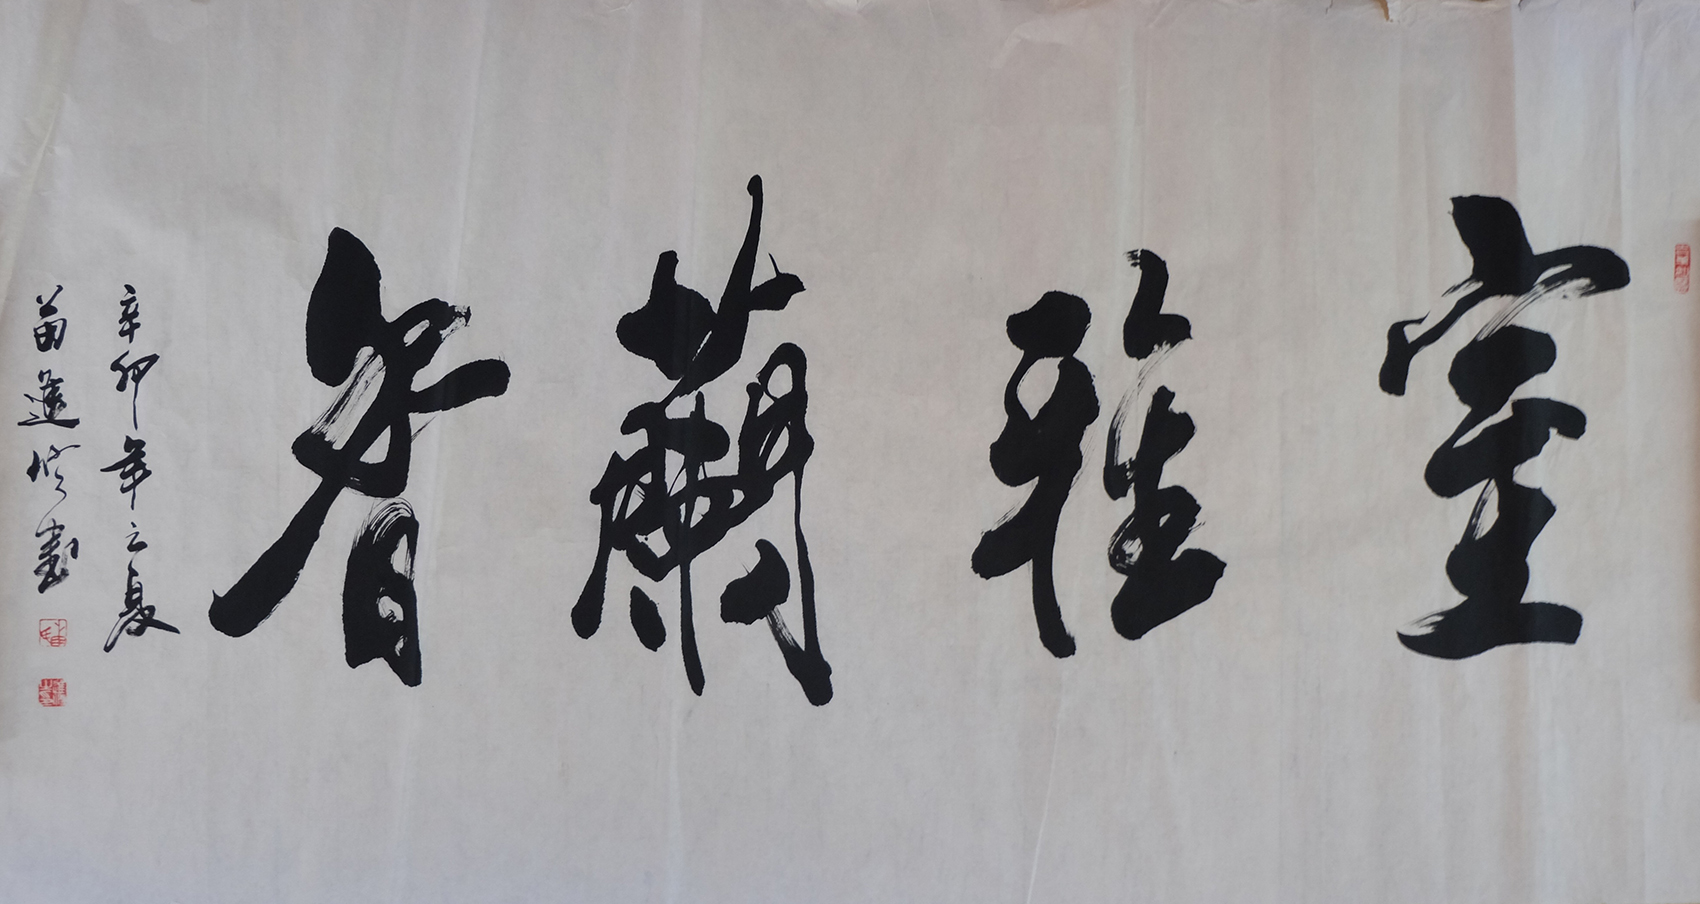 室雅蘭香
辛卯年之夏
苗進修書